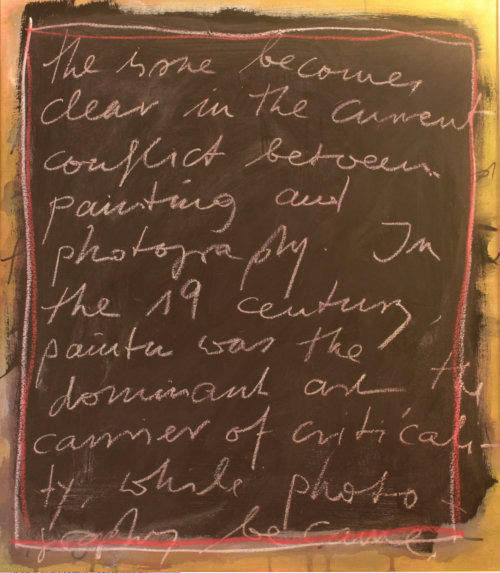 the issue becomes
clear in the current
conflict between
painting and
photography. In
the 19 century,
painter was the
dominant art the
carrier of criticali-
ty, while photo -
graphy became